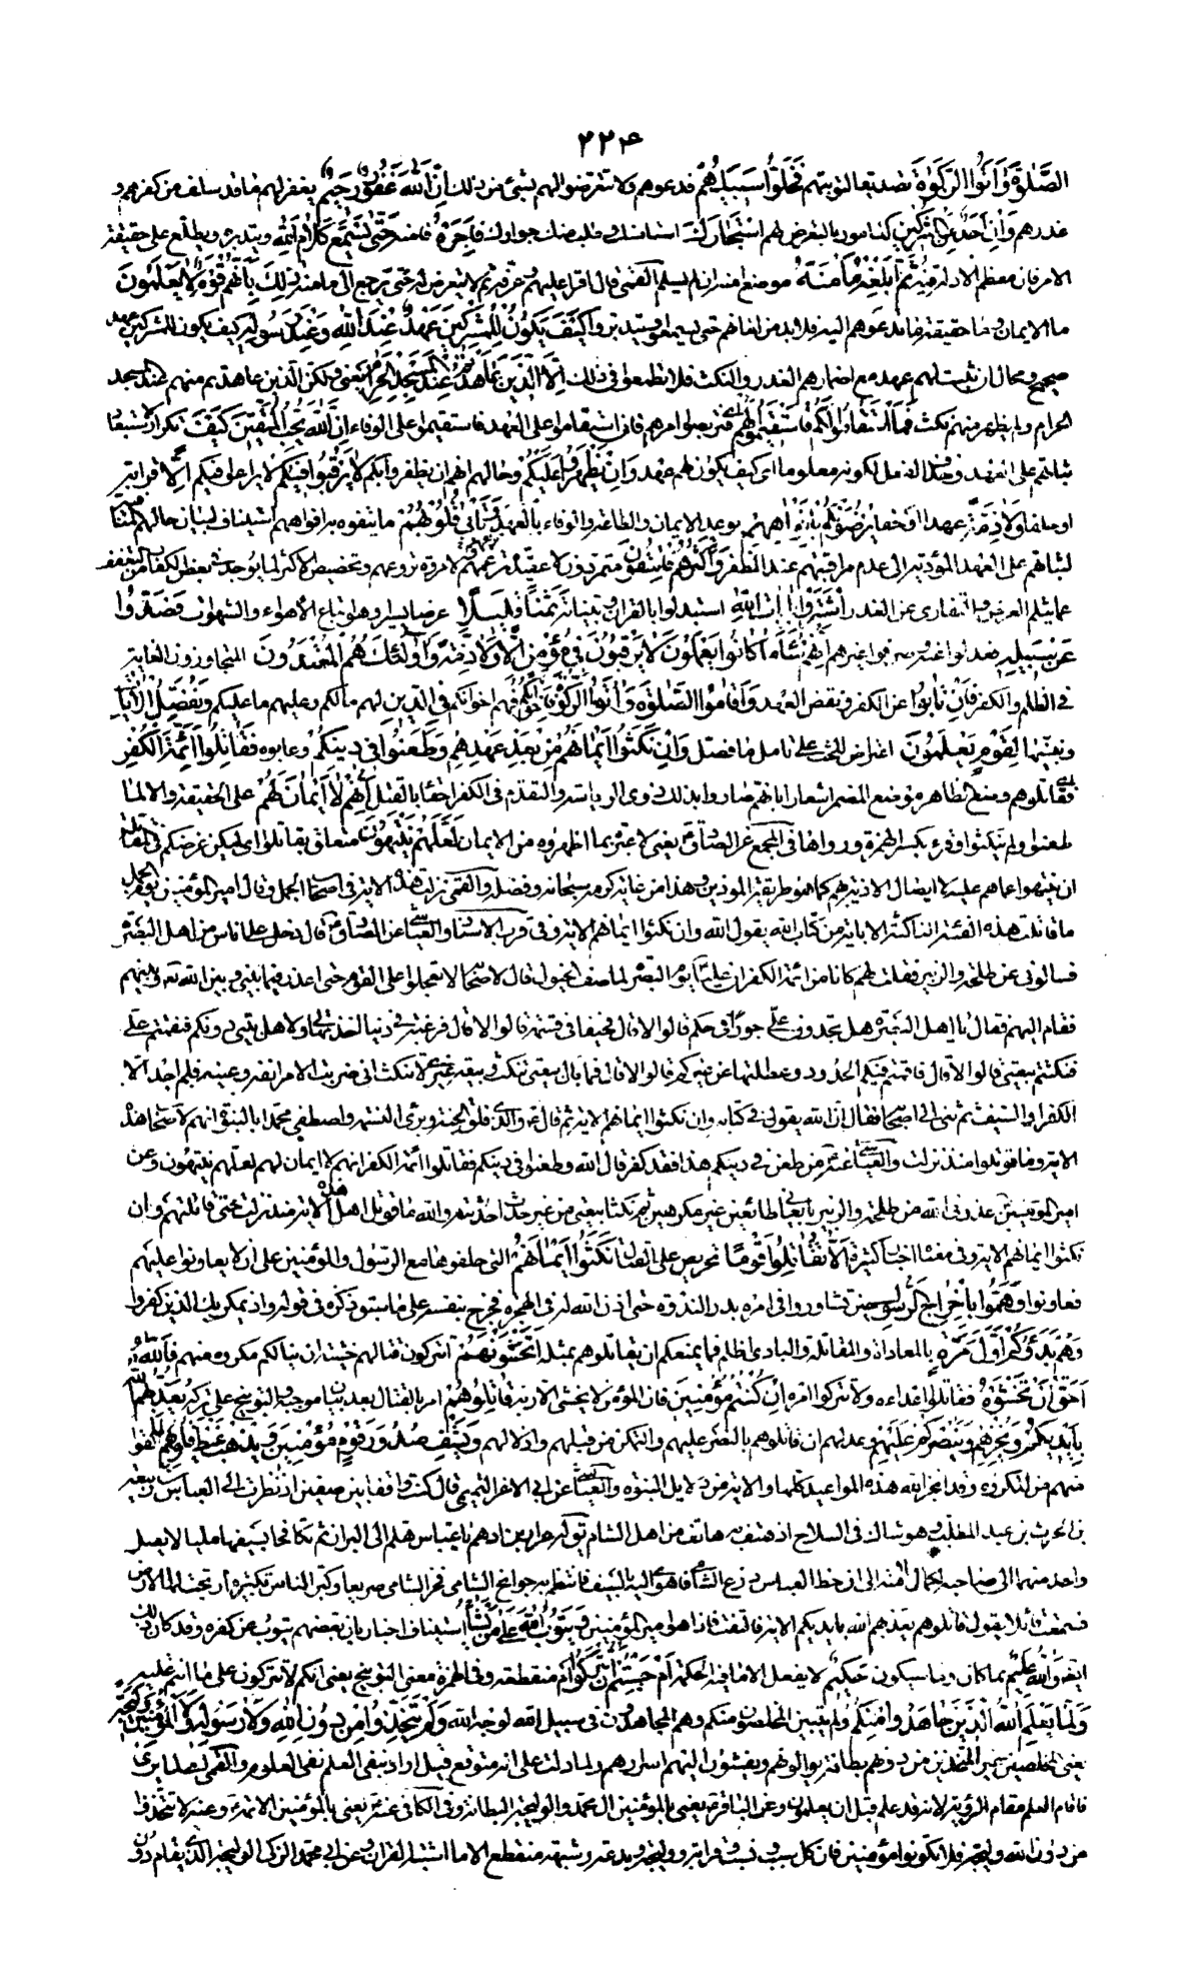 ٢٢٤
الصَّلوةَ وَآتَوُا الزَّكوةَ تصديقا لتوبتهم فَخَلُّوا سَبِيلَهُمْ فدعوهم ولا تتعرضوا لهم بشئ من ذلك إِنَّ اللهَ غَفُورٌ رَحِيمٌ يغفر لهم ما قد سلف من كفرهم و
غدرهم وَإِنْ أَحَدٌ مِنَ الْمُشْرِكِينَ المأمور بالتعرض لهم اسْتَجارَكَ استأمنك وطلب منك جوارك فَأَجِرْهُ فامنه حَتّى يَسْمَعَ كَلامَ اللهِ ويتدبره ويطلع على حقيقة
الامر فان معظم الادلة فيه ثُمَّ أَبْلِغْهُ مَأْمَنَهُ موضع امنه ان لم يسلم القمي قال اقرأ عليه وعرفه ثم لا تتعرض له حتى يرجع الى مأمنه ذلِكَ بِأَنَّهُمْ قَوْمٌ لا يَعْلَمُونَ
ما الايمان وما حقيقة ما تدعوهم اليه فلا بد من امانهم حتى يسمعوا ويتدبروا كَيْفَ يَكُونُ لِلْمُشْرِكِينَ عَهْدٌ عِنْدَ اللهِ وَعِنْدَ رَسُولِهِ كيف يكون للمشركين عهد
صحيح ومحال ان يثبت لهم عهد مع اضمارهم الغدر والنكث فلا تطمعوا في ذلك إِلَّا الَّذِينَ عاهَدْتُمْ عِنْدَ الْمَسْجِدِ الْحَرامِ يعني ولكن الذين عاهدتم منهم عند المسجد
الحرام ولم يظهر منهم نكث فَمَا اسْتَقامُوا لَكُمْ فَاسْتَقِيمُوا لَهُمْ اي فتربصوا امرهم فان استقاموا على العهد فاستقيموا على الوفاء إِنَّ اللهَ يُحِبُّ الْمُتَّقِينَ كَيْفَ تكرار لاستبعاد
ثباتهم على العهد وحذف الفعل لكونه معلوما اي كيف يكون لهم عهد وَإِنْ يَظْهَرُوا عَلَيْكُمْ وحالهم انهم ان يظفروا بكم لا يَرْقُبُوا فِيكُمْ لا يراعوا فيكم إِلًّا قرابة
او حلفا وَلا ذِمَّةً عهدا او حقا يُرْضُونَكُمْ بِأَفْواهِهِمْ بوعد الايمان والطاعة والوفاء بالعهد وَتَأْبى قُلُوبُهُمْ ما يتفوه به افواههم استيناف لبيان حالهم المنافية
لثباتهم على العهد المؤدية الى عدم مراقبتهم عند الظفر وَأَكْثَرُهُمْ فاسِقُونَ متمردون لا عقيدة تزعهم ولا مروة تردعهم وتخصيص الاكثر لما يوجد في بعض الكفار من التعفف
عما يثلم العرض والتفادي عن الغدر اشْتَرَوْا بِآياتِ اللهِ استبدلوا بالقرآن وبيناته ثَمَناً قَلِيلاً عرضا يسيرا وهو اتباع الاهواء والشهوات فَصَدُّوا
عَنْ سَبِيلِهِ فعدلوا عنه وصرفوا غيرهم إِنَّهُمْ ساءَ ما كانُوا يَعْمَلُونَ لا يَرْقُبُونَ فِي مُؤْمِنٍ إِلًّا وَلا ذِمَّةً وَأُولئِكَ هُمُ الْمُعْتَدُونَ المتجاوزون الغاية
في الظلم والكفر فَإِنْ تابُوا عن الكفر ونقض العهد وَأَقامُوا الصَّلوةَ وَآتَوُا الزَّكوةَ فَإِخْوانُكُمْ فهم اخوانكم فِي الدِّينِ لهم ما لكم وعليهم ما عليكم وَنُفَصِّلُ الْآياتِ
ونبينها لِقَوْمٍ يَعْلَمُونَ اعتراض للحث على تامل ما فصل وَإِنْ نَكَثُوا أَيْمانَهُمْ مِنْ بَعْدِ عَهْدِهِمْ وَطَعَنُوا فِي دِينِكُمْ وعابوه فَقاتِلُوا أَئِمَّةَ الْكُفْرِ
اي فقاتلوهم وضع الظاهر موضع المضمر اشعارا بانهم صاروا بذلك ذوي الرياسة والتقدم في الكفر احقاء بالقتل إِنَّهُمْ لا أَيْمانَ لَهُمْ على الحقيقة والا لما
طعنوا ولم ينكثوا وقرئ بكسر الهمزة ورواها في المجمع عن الصادق يعني لا عبرة بما اظهروه من الايمان لَعَلَّهُمْ يَنْتَهُونَ متعلق بقاتلوا اي ليكن غرضكم في المقاتلة
ان ينتهوا عما هم عليه لا ايصال الاذية بهم كما هو طريقة الموذين وهذا من غاية كرمه سبحانه وفضله والقمي نزلت هذه الاية في اصحاب الجمل وقال امير المؤمنين يوم الجمل
ما قاتلت هذه الفئة الناكثة الا باية من كتاب الله يقول الله وان نكثوا ايمانهم الاية وفي قرب الاسناد والعياشي عن الصادق قال دخل علي اناس من اهل البصرة
فسالوني عن طلحة والزبير فقلت لهم كانا من ائمة الكفر ان عليا يوم البصرة لما صف الخيول قال لاصحابه لا تعجلوا على القوم حتى اعذر فيما بيني وبين الله تعالى وبينهم
فقام اليهم فقال يا اهل البصرة هل تجدون علي جورا في حكم قالوا لا قال فحيفا في قسمة قالوا لا قال فرغبة في دنيا اخذتها لي ولاهل بيتي دونكم فنقمتم علي
فنكثتم بيعتي قالوا لا قال فاقمت فيكم الحدود وعطلتها عن غيركم قالوا لا قال فما بال بيعتي تنكث وبيعة غيري لا تنكث اني ضربت الامر انفه وعينه فلم اجد الا
الكفر او السيف ثم ثنى الى اصحابه فقال ان الله يقول في كتابه وان نكثوا ايمانهم الاية ثم قال والذي فلق الحبة وبرئ النسمة واصطفى محمدا بالنبوة انهم لاصحاب هذه
الاية وما قوتلوا منذ نزلت والعياشي عنه من طعن في دينكم هذا فقد كفر قال الله وطعنوا في دينكم فقاتلوا ائمة الكفر انهم لا ايمان لهم لعلهم ينتهون وعن
امير المؤمنين عذرني الله من طلحة والزبير بايعاني طائعين غير مكرهين ثم نكثا بيعتي من غير حدث احدثته والله ما قوتل اهل هذه الاية منذ نزلت حتى قاتلتهم وان
نكثوا ايمانهم الاية وفي معناه اخبار كثيرة أَلا تُقاتِلُونَ قَوْماً تحريص على القتال نَكَثُوا أَيْمانَهُمْ التي حلفوها مع الرسول والمؤمنين على ان لا يعاونوا عليهم
فعاونوا وَهَمُّوا بِإِخْراجِ الرَّسُولِ حين تشاوروا في امره بدار الندوة حتى اذن الله له في الهجرة فخرج بنفسه على ما سبق ذكره في قوله واذ يمكر بك الذين كفروا
وَهُمْ بَدَؤُكُمْ أَوَّلَ مَرَّةٍ بالمعاداة والمقاتلة والبادي اظلم فما يمنعكم ان تقاتلوهم بمثله أَتَخْشَوْنَهُمْ اتتركون قتالهم خشية ان ينالكم مكروه منهم فَاللهُ
أَحَقُّ أَنْ تَخْشَوْهُ فقاتلوا اعداءه ولا تتركوا امره إِنْ كُنْتُمْ مُؤْمِنِينَ فان المؤمن لا يخشى الا ربه قاتِلُوهُمْ امر بالقتال بعد بيان موجبه والتوبيخ على تركه يُعَذِّبْهُمُ اللهُ
بِأَيْدِيكُمْ وَيُخْزِهِمْ وَيَنْصُرْكُمْ عَلَيْهِمْ وعد لهم ان قاتلوهم بالنصر عليهم والتمكن من قتلهم واذلالهم وَيَشْفِ صُدُورَ قَوْمٍ مُؤْمِنِينَ وَيُذْهِبْ غَيْظَ قُلُوبِهِمْ لما لقوا
منهم من المكروه وقد انجز الله هذه المواعيد كلها والاية من دلايل النبوة والعياشي عن ابي الاغر التميمي قال كنت واقفا بين صفين اذ نظرت الى العباس بن ربيعة
بن الحرث بن عبد المطلب وهو شاك في السلاح اذ هتف به هاتف من اهل الشام يقال له عرار بن ادهم يا عباس هلم الى البراز ثم تكافحا بسيفهما مليا لا يصل
واحد منهما الى صاحبه لكمال لامته الى ان لحظ العباس وهن في درع الشامي فاهوى اليه بالسيف فانتظم به جوانح الشامي فخر الشامي صريعا وكبر الناس تكبيرة ارتجت لها الارض
فسمعت قائلا يقول قاتلوهم يعذبهم الله بايديكم الاية فالتفت فاذا هو امير المؤمنين وَيَتُوبُ اللهُ عَلى مَنْ يَشاءُ استيناف اخبار بان بعضهم يتوب عن كفره وقد كان ذلك
ايضا وَاللهُ عَلِيمٌ بما كان وما سيكون حَكِيمٌ لا يفعل الا ما فيه الحكمة أَمْ حَسِبْتُمْ أَنْ تُتْرَكُوا ام منقطعة وفي الهمزة معنى التوبيخ يعني انكم لا تتركون على ما انتم عليه
وَلَمَّا يَعْلَمِ اللهُ الَّذِينَ جاهَدُوا مِنْكُمْ ولم يتبين المخلصون منكم وهم المجاهدون في سبيل الله لوجه الله وَلَمْ يَتَّخِذُوا مِنْ دُونِ اللهِ وَلا رَسُولِهِ وَلَا الْمُؤْمِنِينَ وَلِيجَةً
يعني المخلصين غير المتخذين من دونهم بطانة يوالونهم ويفشون اليهم اسرارهم ولما دلت على انه متوقع قيل اراد بنفي العلم نفي المعلوم والقمي اي لما ير
فاقام العلم مقام الرؤية لانه قد علم قبل ان يعلموا وعن الباقر يعني بالمؤمنين آل محمد والوليجة البطانة وفي الكافي عنه يعني بالمؤمنين الائمة وعنه لا تتخذوا
من دون الله وليجة فلا تكونوا مؤمنين فان كل سبب ونسب وقرابة ووليجة وبدعة وشبهة منقطع الا ما اثبته القرآن وعن ابي محمد الزكي الوليجة الذي يقام دون